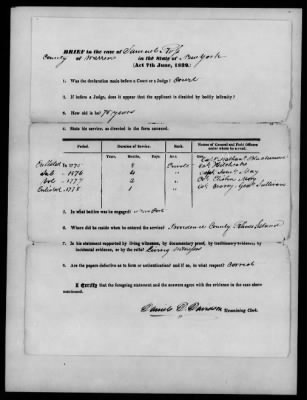 BRIEF in the case of Samuel
County of Warren in the State of New York
(Act 7th June, 1832.)
1. Was the declaration made before a Court or a Judge? Court
2. If before a Judge, does it appear that the applicant is disabled by bodily infirmity?
3. How old is he? 76 years
4. State his service, as directed in the form annexed.
Period. Duration of Service. Rank. Names of General and Field Officers under whom he served.
Years. Months. Days.
Enlisted in 1775 8 Private
Col. Hitchcock
1776 4 "
1777 2 "
Enlisted 1778 1 " Genl Sullivan
5. In what battles was he engaged?
6. Where did he reside when he entered the service? Providence County Rhode Island
7. Is his statement supported by living witnesses, by documentary proof, by traditionary evidence, by incidental evidence, or by the rolls? Living witnesses
8. Are the papers defective as to form or authentication? and if so, in what respect? Correct
I Certify that the foregoing statement and the answers agree with the evidence in the case above mentioned.
Examining Clerk.